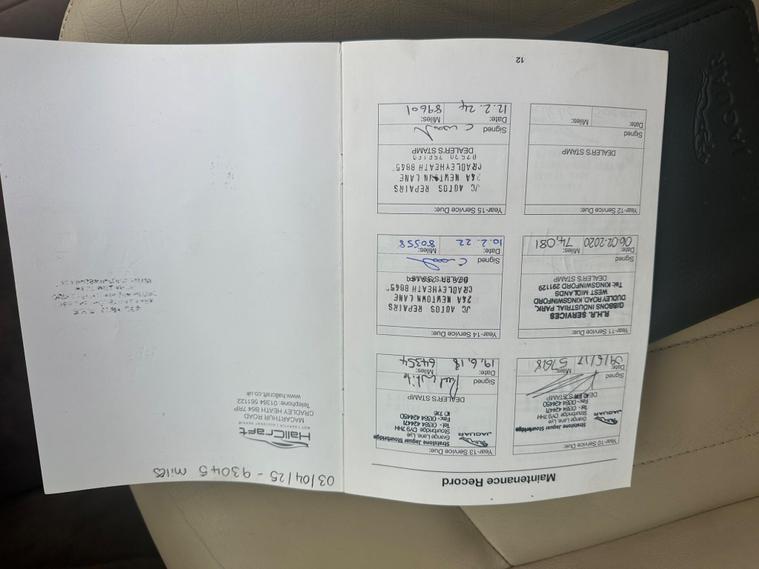 Maintenance Record
Year-10 Service Due:
JAGUAR
Stratstone Jaguar Stourbridge
Grange Lane, Lye
Stourbridge DY9 7HH
DEALER'S STAMP
Signed
Date:
Miles:
57618
Year-11 Service Due:
R.H.R. SERVICES
GIBBONS INDUSTRIAL PARK,
DUDLEY ROAD, KINGSWINFORD
WEST MIDLANDS
Tel: KINGSWINFORD 291129
DEALER'S STAMP
Signed
Date:
Miles:
06-02-2020 74,081
Year-12 Service Due:
DEALER'S STAMP
Signed
Date:
Miles:
Year-13 Service Due:
JAGUAR
Stratstone Jaguar Stourbridge
Grange Lane, Lye
DEALER'S STAMP
Signed
Date:
Miles:
19.6.18 64354
Year-14 Service Due:
JC AUTOS REPAIRS
24A NEWTOWN LANE
CRADLEYHEATH B645
DEALER'S STAMP
Signed
Date:
Miles:
10.2.22 80558
Year-15 Service Due:
JC AUTOS REPAIRS
24A NEWTOWN LANE
CRADLEYHEATH B645
DEALER'S STAMP
Signed
Date:
Miles:
12.2.24 89601
12
03/04/25 - 93045 miles
HallCraft
MACARTHUR ROAD
CRADLEY HEATH B64 7RP
Telephone: 01384 561122
www.hallcraft.co.uk
JAGUAR